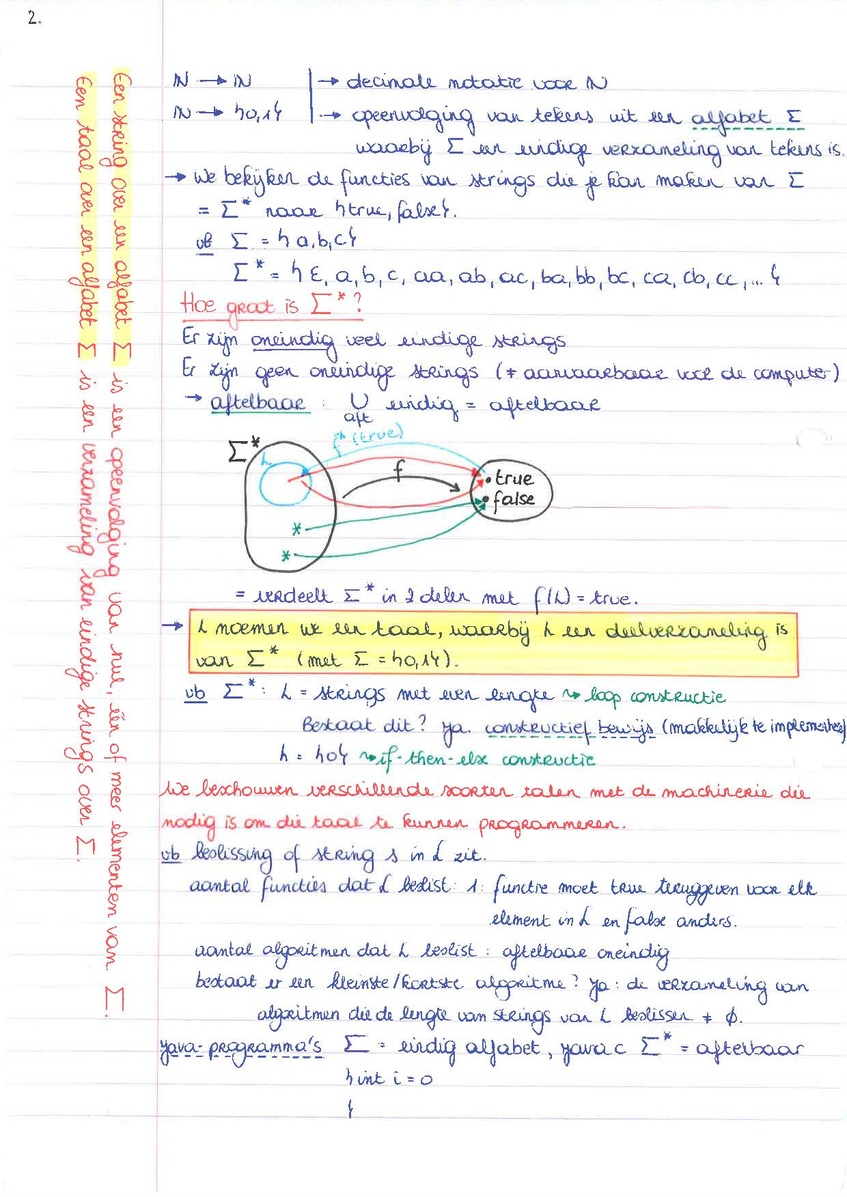 2.
ℕ → ℕ | → decimale notatie voor ℕ
ℕ → {0,1} | → opeenvolging van tekens uit een alfabet Σ
waarbij Σ een eindige verzameling van tekens is.
→ we bekijken de functies van strings die je kan maken van Σ
= Σ* naar {true, false}.
vb Σ = {a,b,c}
Σ* = {ε, a, b, c, aa, ab, ac, ba, bb, bc, ca, cb, cc, ... }
Hoe groot is Σ*?
Er zijn oneindig veel eindige strings
Er zijn geen oneindige strings (≠ aanvaarbaar voor de computer)
→ aftelbaar : ∪ eindig = aftelbaar
aft
Σ*
L
f⁻¹(true)
f
true
false
= verdeelt Σ* in 2 delen met f(L) = true.
→ L noemen we een taal, waarbij L een deelverzameling is
van Σ* (met Σ = {0,1}).
vb Σ*: L = strings met even lengte ⤳ loop constructie
Bestaat dit? ja. constructief bewijs (makkelijk te implementeren)
L = {0} ⤳ if-then-else constructie
We beschouwen verschillende soorten talen met de machinerie die
nodig is om die taal te kunnen programmeren.
vb beslissing of string s in L zit.
aantal functies dat L beslist: 1: functie moet true teruggeven voor elk
element in L en false anders.
aantal algoritmen dat L beslist : aftelbaar oneindig
bestaat er een kleinste/kortste algoritme? ja: de verzameling van
algoritmen die de lengte van strings van L beslissen ≠ ∅.
java-programma's Σ = eindig alfabet, java ⊂ Σ* = aftelbaar
{ int i = 0
}
Een string over een alfabet Σ is een opeenvolging van nul, één of meer elementen van Σ.
Een taal over een alfabet Σ is een verzameling van eindige strings over Σ.